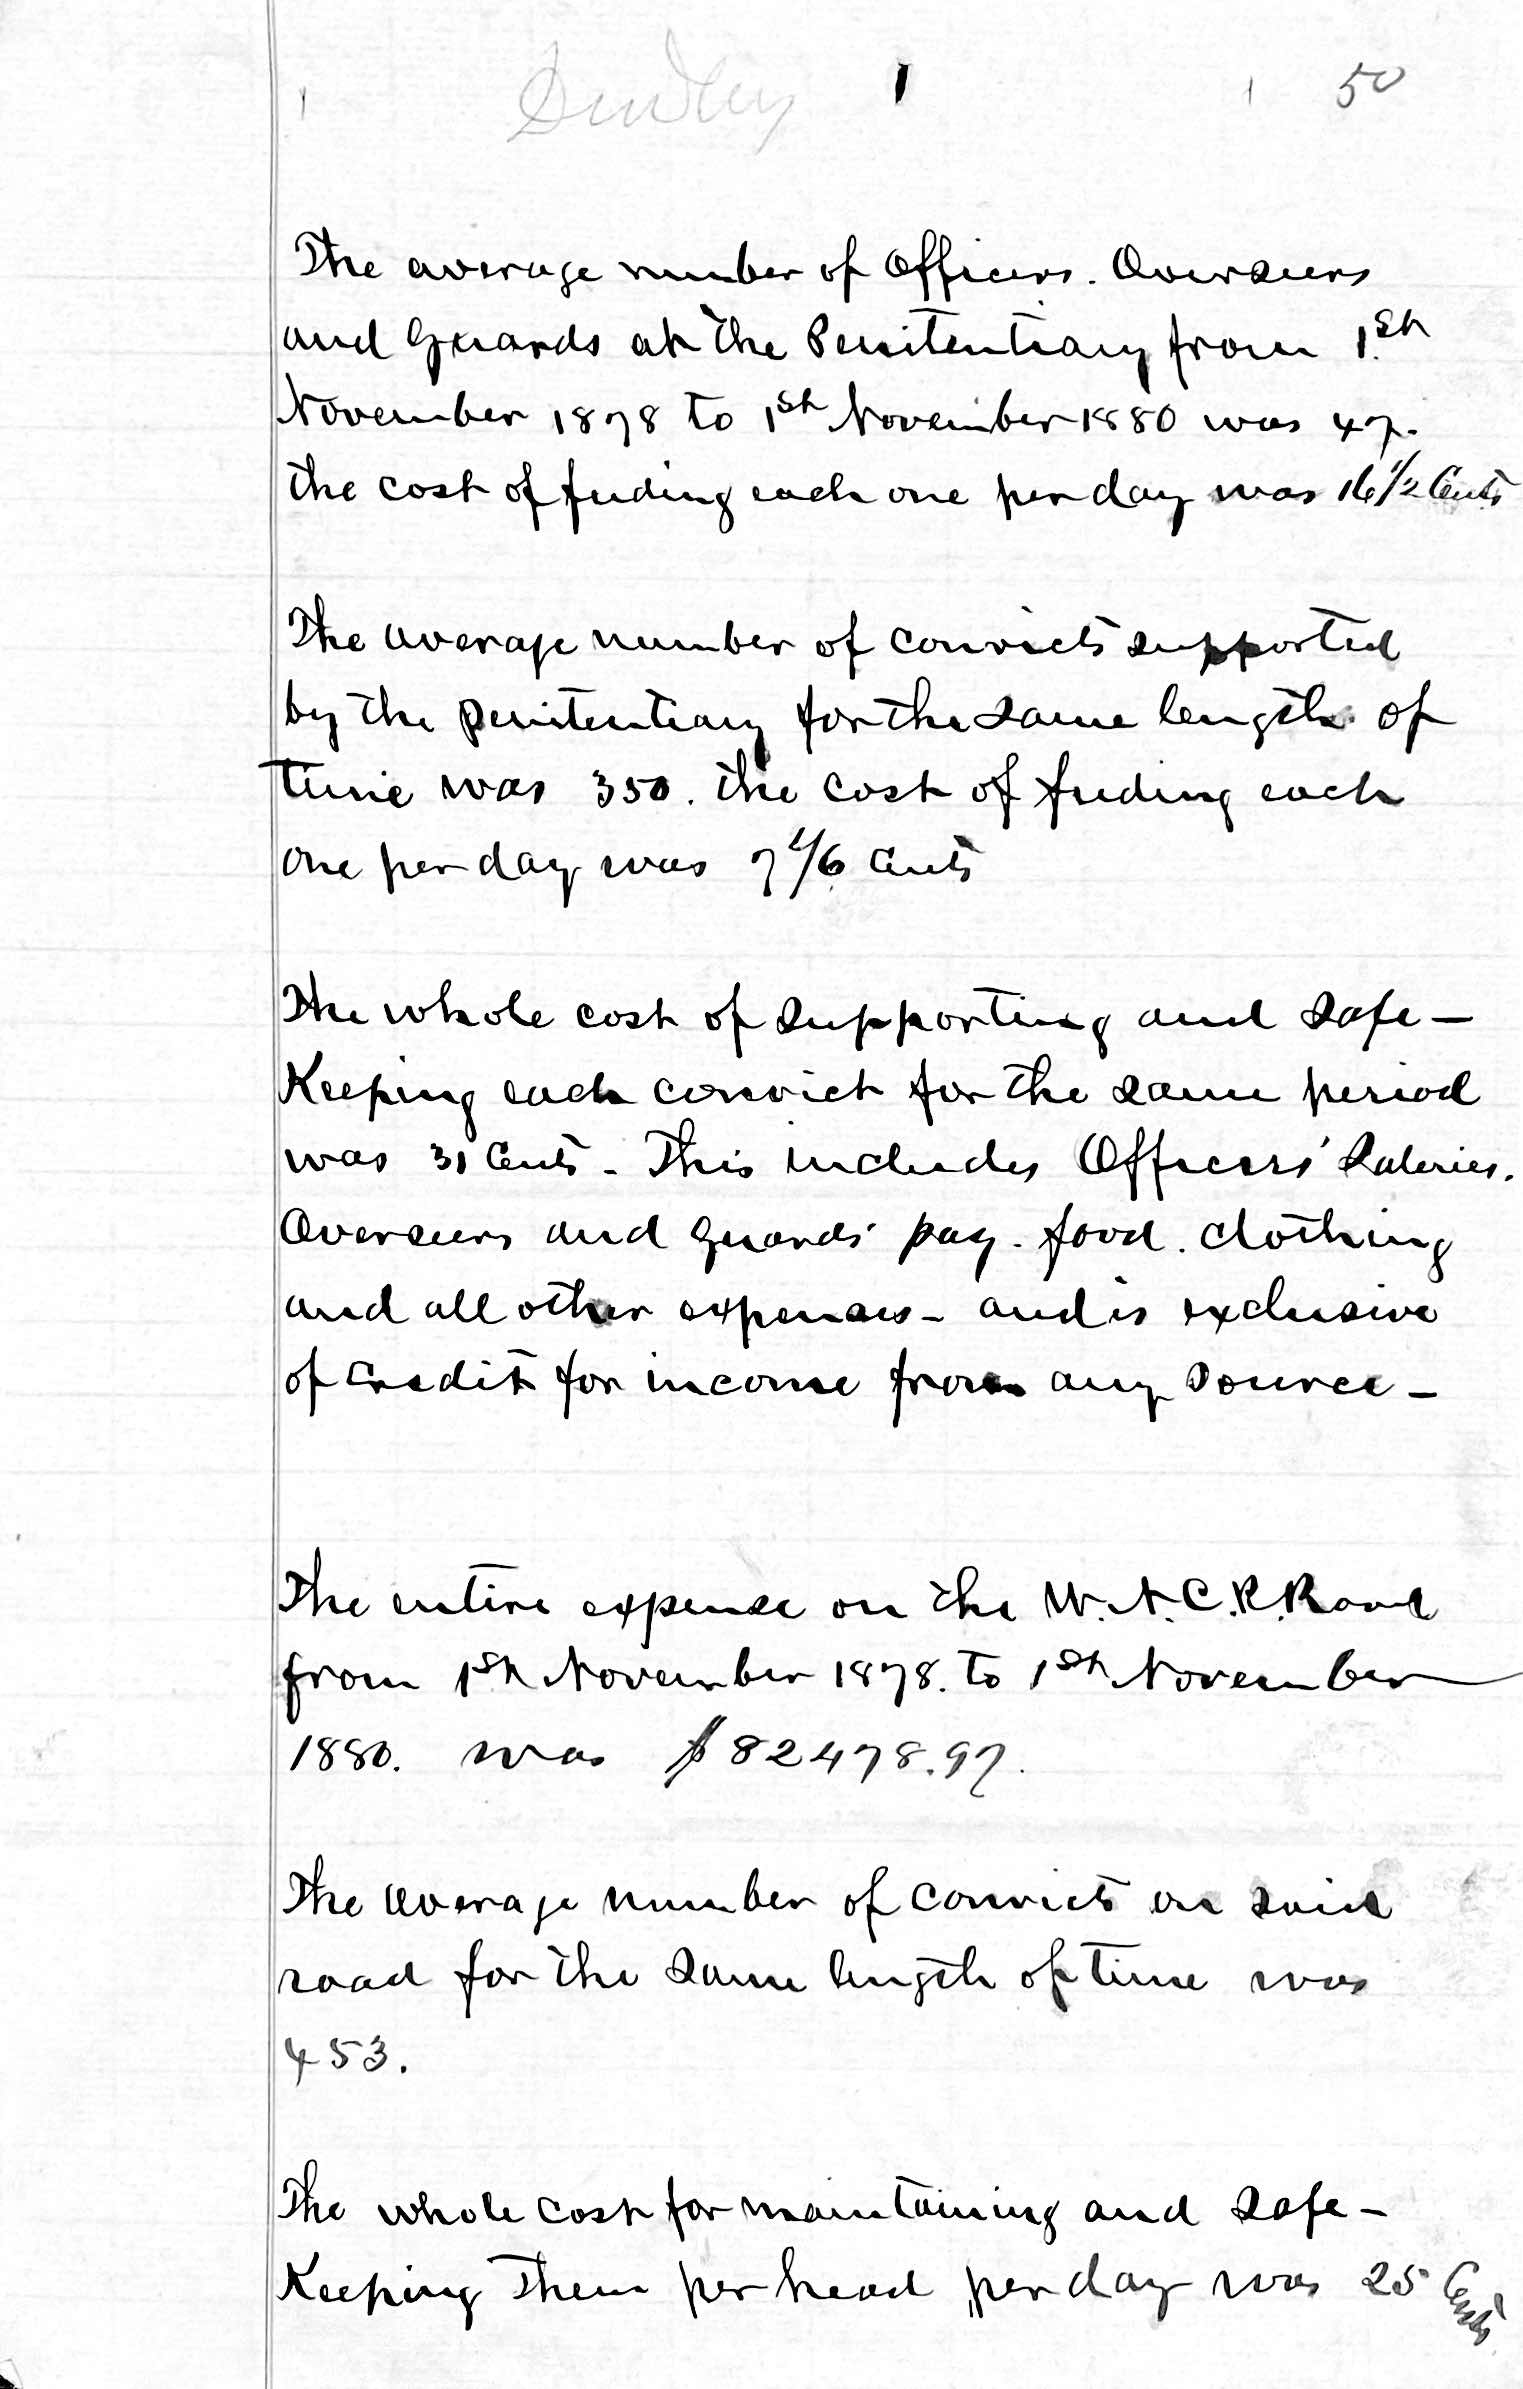 1 50
The average number of Officers. Overseers
and Guards at the Penitentiary from 1st
November 1878 to 1st November 1880 was 47.
the cost of feeding each one per day was 16 1/2 Cents
The average number of convicts supported
by the penitentiary for the same length of
time was 350. the cost of feeding each
one per day was 7 1/6 Cents
The whole cost of supporting and safe-
Keeping each convict for the same period
was 31 Cents - This includes Officers' Salaries.
Overseers and Guards' pay. food. clothing
and all other expenses - and is exclusive
of Credit for income from any source -
The entire expense on the W.N.C.R.Road
from 1st November 1878. to 1st November
1880. was $82478.97.
The average number of convicts on said
road for the same length of time was
453.
The whole cost for maintaining and safe-
Keeping them per head per day was 25 Cents